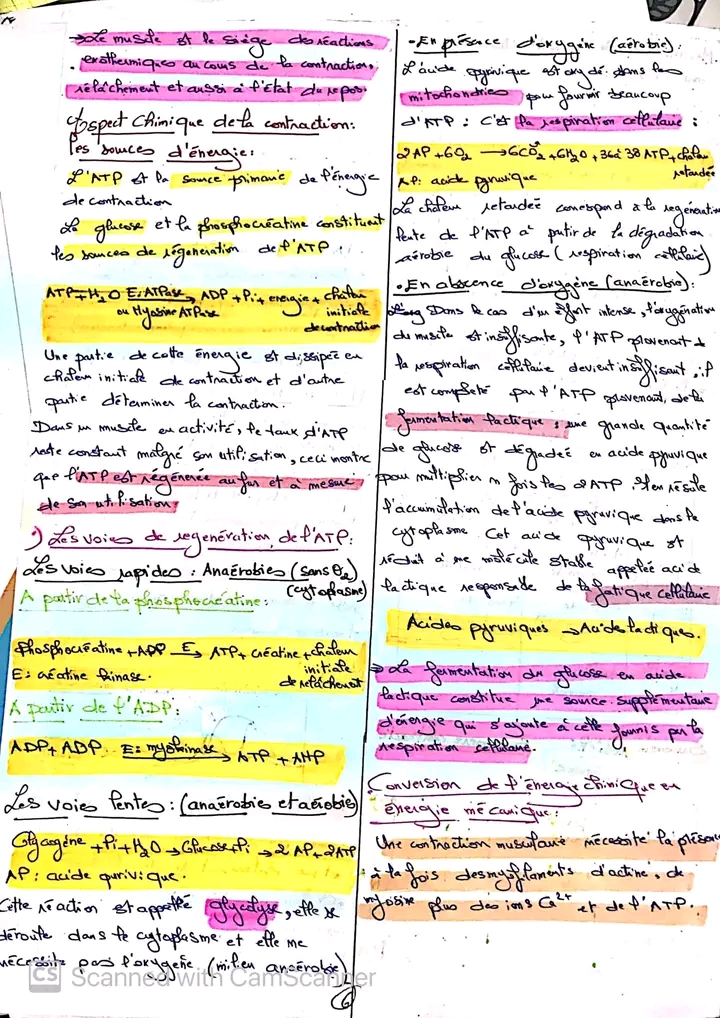 → Le muscle est le siège des réactions
exothermiques au cours de la contraction,
relâchement et aussi à l'état du repos.
Aspect Chimique de la contraction:
les sources d'énergie:
L'ATP est la source primaire de l'énergie
de contraction
Le glucose et la phosphocréatine constituent
les sources de régénération de l'ATP.
ATP + H₂O E: ATPase → ADP + Pi + energie + chaleur
ou Myosine ATPase initiale
de contraction
Une partie de cette énergie est dissipée en
chaleur initiale de contraction et d'autre
partie déterminer la contraction.
Dans un muscle en activité, le taux d'ATP
reste constant malgré son utilisation, ceci montre
que l'ATP est régénérée au fur et à mesure
de son utilisation,
) Les voies de regénération de l'ATP:
Les voies rapides : Anaérobies (sans O₂)
(cytoplasme)
A partir de la phosphocréatine:
phosphocréatine + ADP E → ATP + créatine + chaleur
E: créatine kinase. initiale
de relâchement
A partir de l'ADP:
ADP + ADP E: myokinase → ATP + AMP
Les voies lentes : (anaérobies et aérobies)
Glycogène + Pi + H₂O → Glucose-Pi → 2 AP + 2ATP
AP : acide purivique.
Cette réaction est appelée glycolyse, elle se
déroule dans le cytoplasme et elle ne
nécessite pas l'oxygène. (milieu anaérobie)
• En présence d'oxygène (aérobie) :
L'acide pyrivique est oxydé dans les
mitochondries pour fournir beaucoup
d'ATP : C'est la respiration cellulaire :
2AP + 6O₂ → 6CO₂ + 6H₂O + 36 à 38 ATP + chaleur
AP: acide pyruvique retardée
La chaleur retardée correspond à la regénération
lente de l'ATP à partir de la dégradation
aérobie du glucose (respiration cellulaire)
• En abscence d'oxygène (anaérobie):
Dans le cas d'un effort intense, l'oxygénation
du muscle est insuffisante, l'ATP provenant d
la respiration cellulaire devient insuffisant, il
est completé par l'ATP provenant de la
fermentation lactique : une grande quantité
de glucose est dégradeé en acide pyruvique
pour multiplier n fois les 2ATP. Il en résulte
l'accumulation de l'acide pyruvique dans le
cytoplasme. Cet acide pyruvique est
réduit à une molécule stable appelée acide
lactique responsable de la fatigue cellulaire
Acides pyruviques → Acides lactiques.
→ La fermentation du glucose en acide
lactique constitue une source supplémentaire
d'énergie qui s'ajoute à celle fournis par la
respiration cellulaire.
Conversion de l'énergie chimique en
énergie mécanique:
Une contraction musculaire nécessite la présence
à la fois des myofilaments d'actine, de
myosine plus des ions Ca²⁺ et de l'ATP.
6
CS Scanned with CamScanner